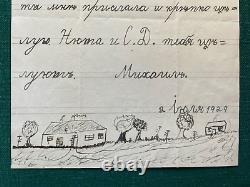 ты мнѣ прислала и крѣпко цѣ-
лую. Нюта и С.Д. тебя цѣ-
луютъ. Михаилъ.
2 Июля 1929